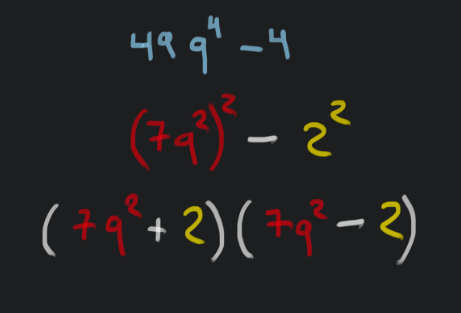 49q⁴ − 4
(7q²)² − 2²
(7q² + 2)(7q² − 2)